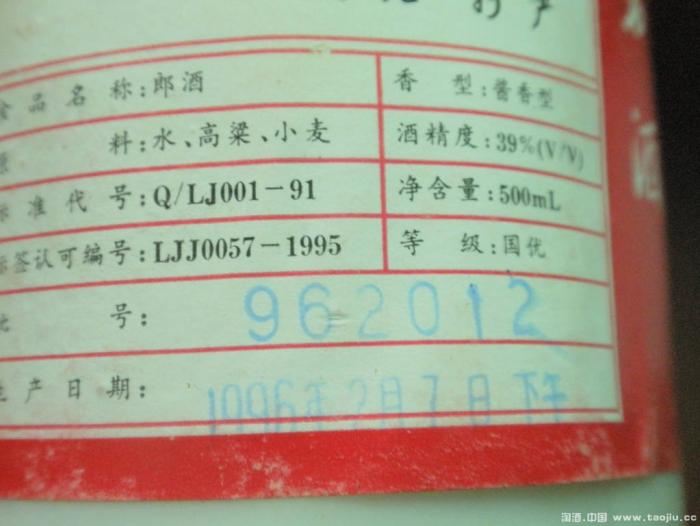 品名称:郎酒 香型:酱香型
料:水、高粱、小麦 酒精度:39%(V/V)
准代号:Q/LJ001-91 净含量:500mL
签认可编号:LJJ0057-1995 等级:国优
号: 962012
产日期: 1996年2月7日下午
酒
淘酒.中国 www.taojiu.cc